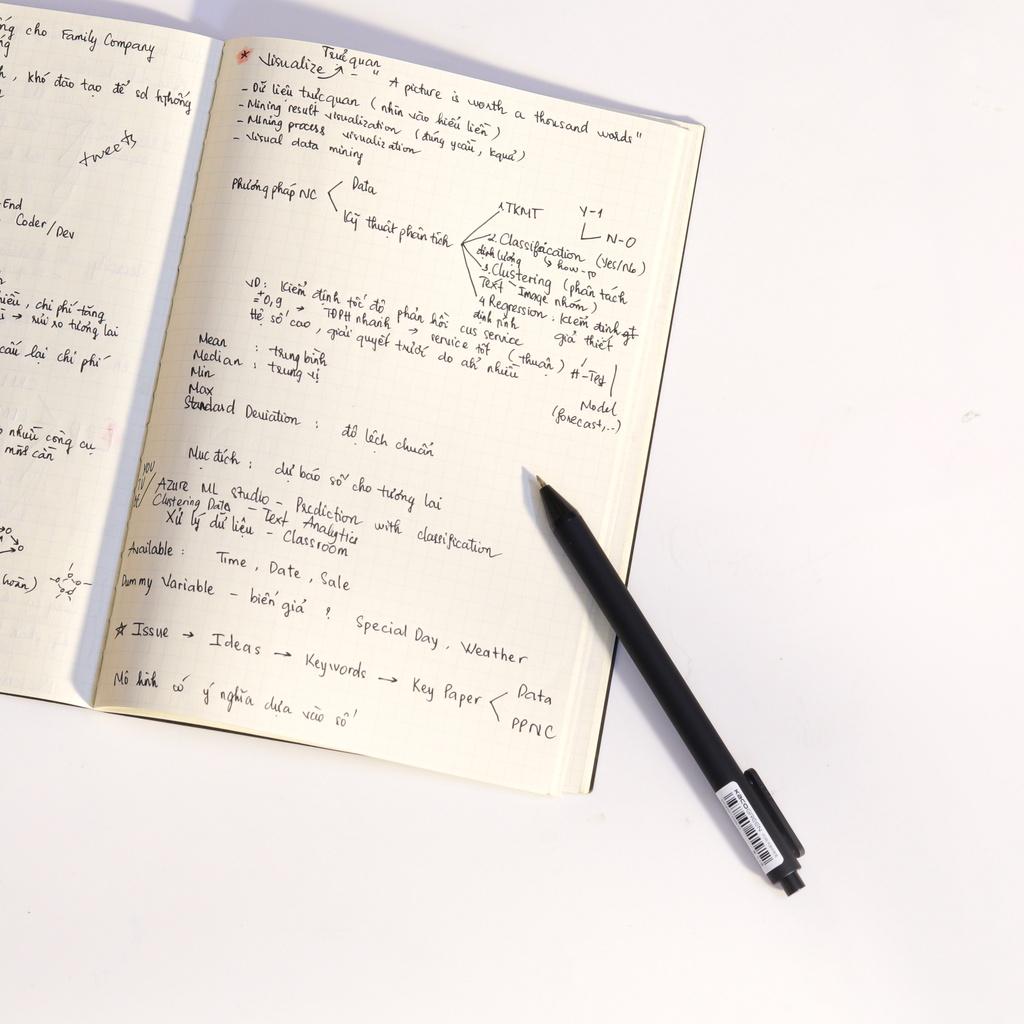 ng cho Family Company
, khó đào tạo để sd hthống
tweets
-End
Coder/Dev
nhiều, chi phí tăng
→ rủi ro tương lai
cấu lại chi phí
nhiều công cụ
mình cần
* Visualize Trực quan
"A picture is worth a thousand words"
- Dữ liệu trực quan (nhìn vào hiểu liền)
- Mining result visualization (đúng ycầu, kquả)
- Mining process visualization
- Visual data mining
Phương pháp NC
Data
Kỹ thuật phân tích
1. TKMT
Y-1
N-0
2. Classification (Yes/No)
định lượng
3. Clustering (phân tách
Text - Image nhóm)
4. Regression: Kiểm định gt
định tính
giả thiết
VD: Kiểm định tốc độ phản hồi cus service
= 0,9 → TĐPH nhanh → service tốt (thuận)
Hệ số cao, giải quyết trước do ah' nhiều
Model
(forecast,..)
Mean : trung bình
Median : trung vị
Min
Max
Standard Deviation : độ lệch chuẩn
Mục đích : dự báo số cho tương lai
YOU
TU
BE
Azure ML Studio - Prediction with classification
Clustering Data - Text Analytics
Xử lý dữ liệu - Classroom
Available : Time, Date, Sale
Dummy Variable - biến giả ? Special Day, Weather
☆ Issue → Ideas → Keywords → Key Paper
Data
PPNC
Mô hình có ý nghĩa dựa vào số
KACO